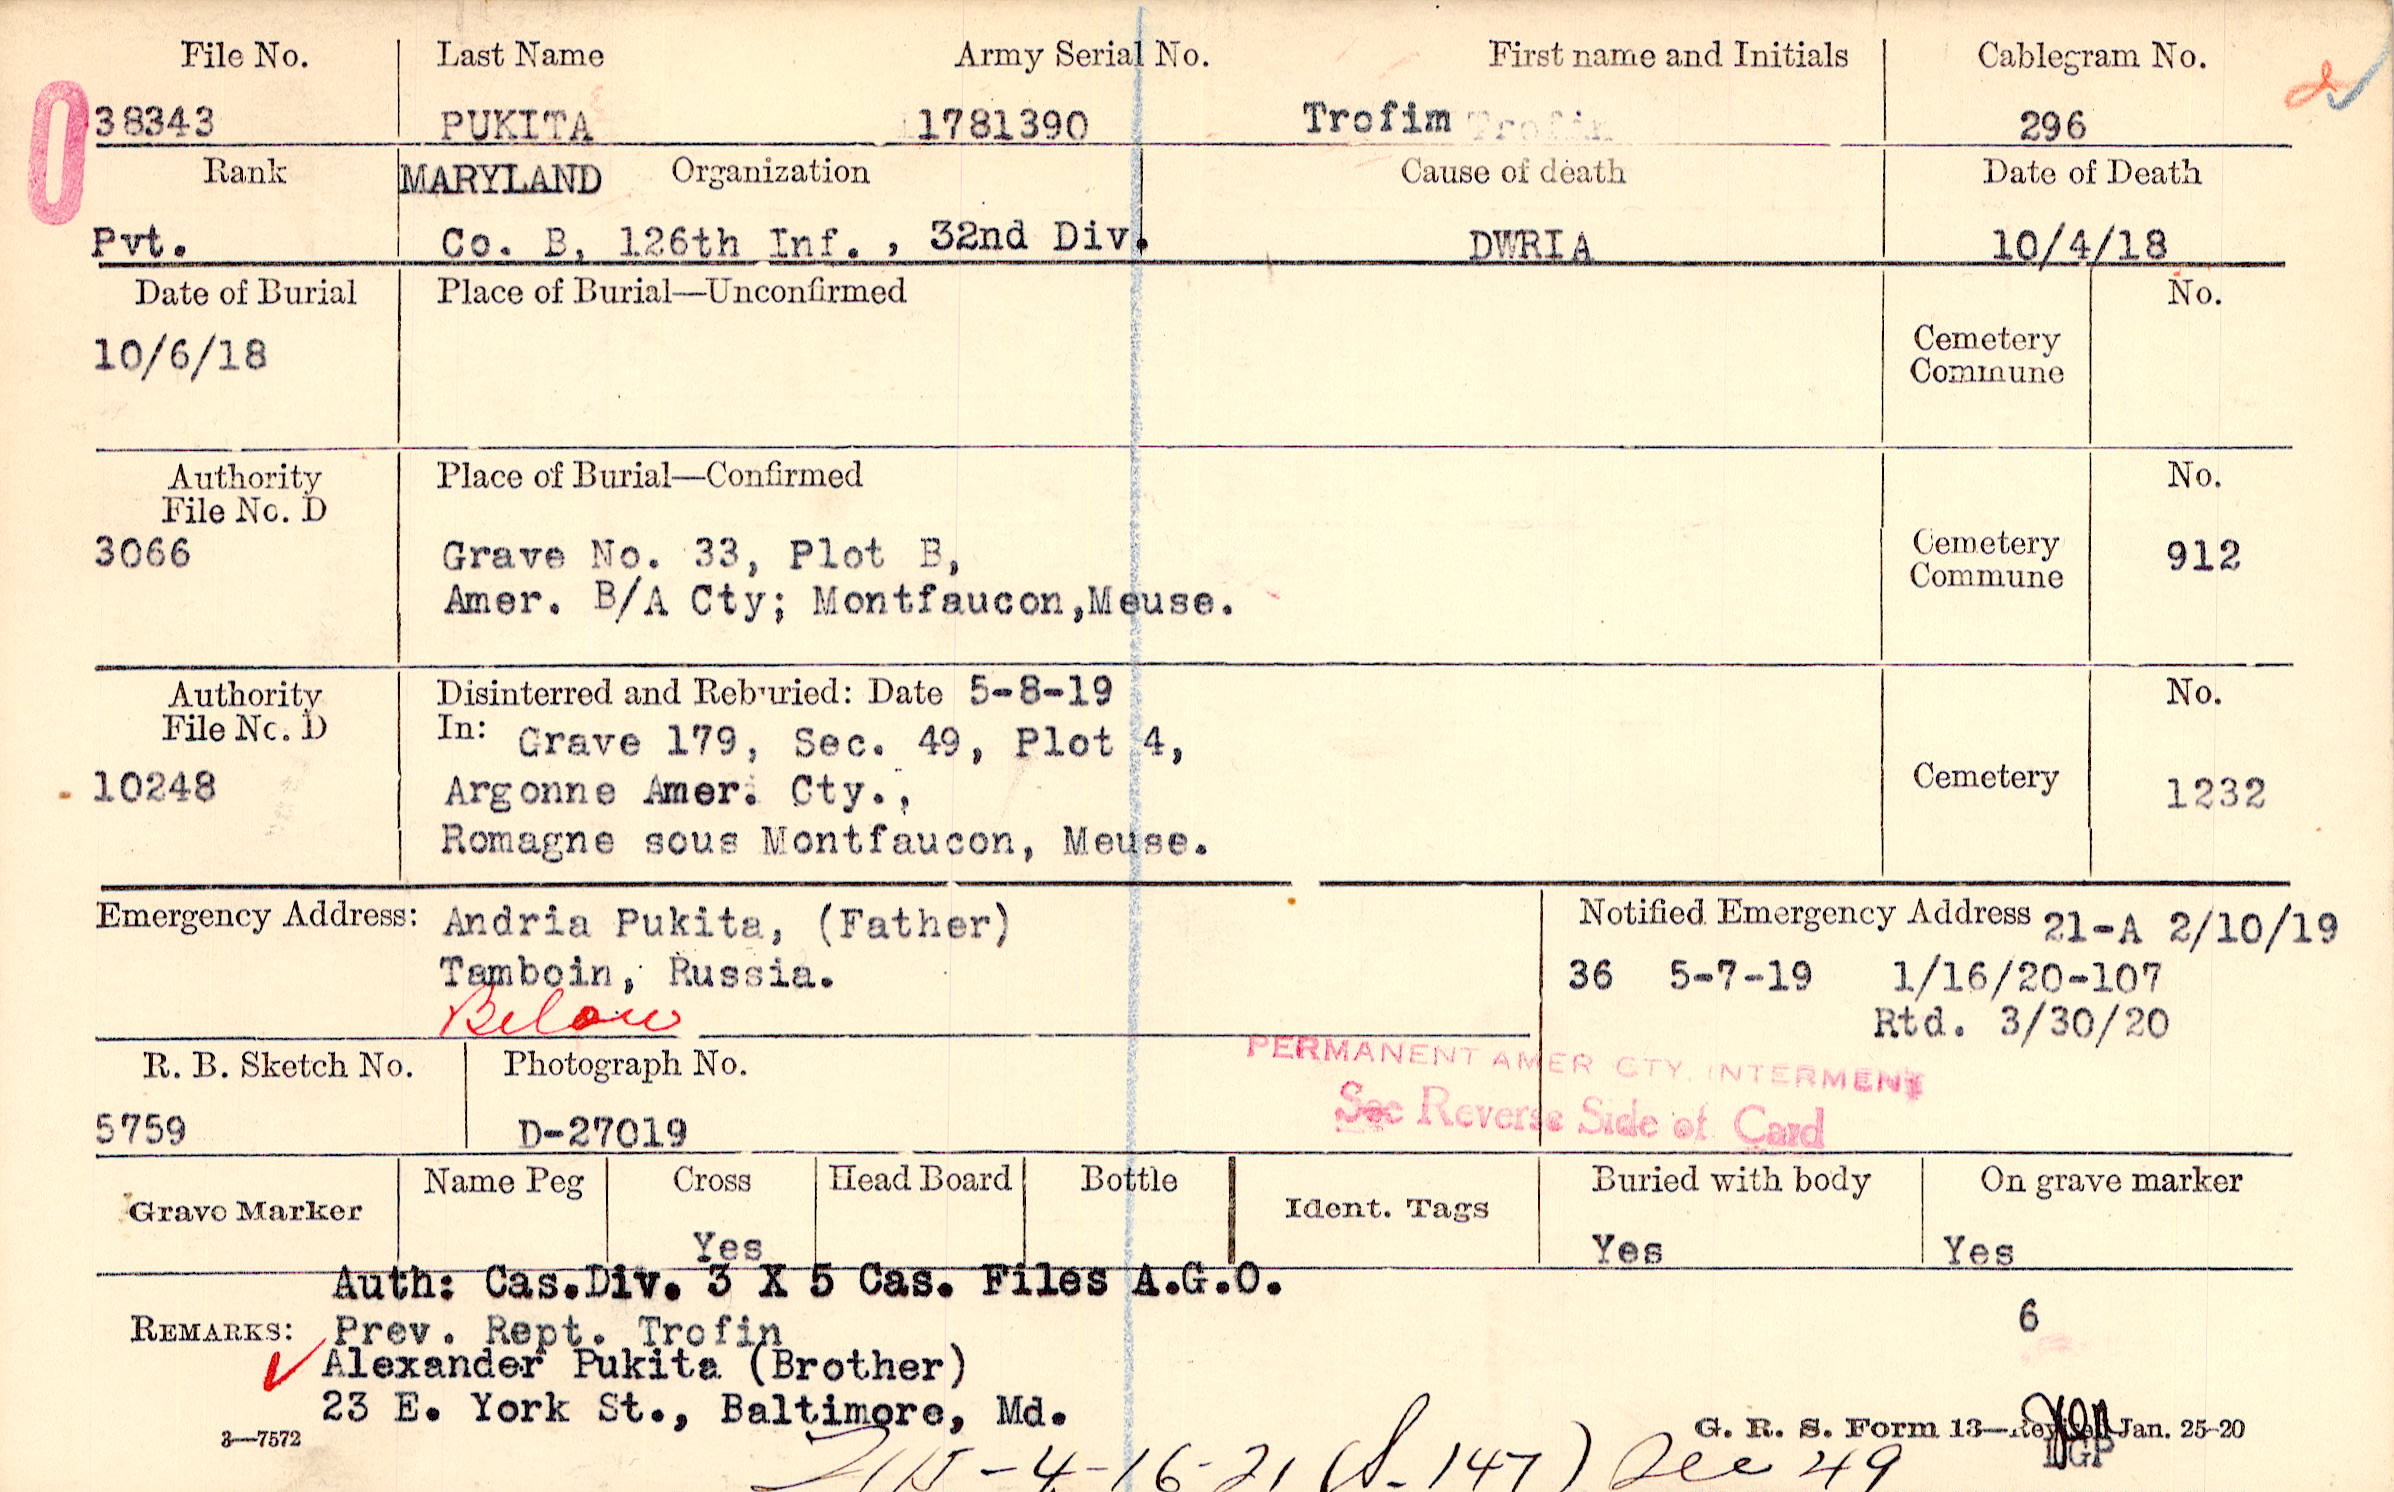 File No. Last Name Army Serial No. First name and Initials Cablegram No.
38343 PUKITA 1781390 Trofim Trofin 296
Rank MARYLAND Organization Cause of death Date of Death
Pvt. Co. B, 126th Inf., 32nd Div. DWRIA 10/4/18
Date of Burial Place of Burial—Unconfirmed No.
10/6/18 Cemetery
Commune
Authority Place of Burial—Confirmed No.
File No. D
3066 Grave No. 33, Plot B, Cemetery 912
Commune
Amer. B/A Cty; Montfaucon,Meuse.
Authority Disinterred and Reburied: Date 5-8-19 No.
File No. D In: Grave 179, Sec. 49, Plot 4,
10248 Argonne Amer. Cty., Cemetery 1232
Romagne sous Montfaucon, Meuse.
Emergency Address: Andria Pukita, (Father) Notified Emergency Address 21-A 2/10/19
Tamboin, Russia. 36 5-7-19 1/16/20-107
Below Rtd. 3/30/20
PERMANENT AMER CTY. INTERMENT
R. B. Sketch No. Photograph No.
See Reverse Side of Card
5759 D-27019
Grave Marker Name Peg Cross Head Board Bottle Ident. Tags Buried with body On grave marker
Yes Yes Yes
Auth: Cas.Div. 3 X 5 Cas. Files A.G.O.
6
REMARKS: Prev. Rept. Trofin
Alexander Pukita (Brother)
23 E. York St., Baltimore, Md.
3—7572 G. R. S. Form 13—Revised Jan. 25-20
4-16-21 (S-147) Sec 49